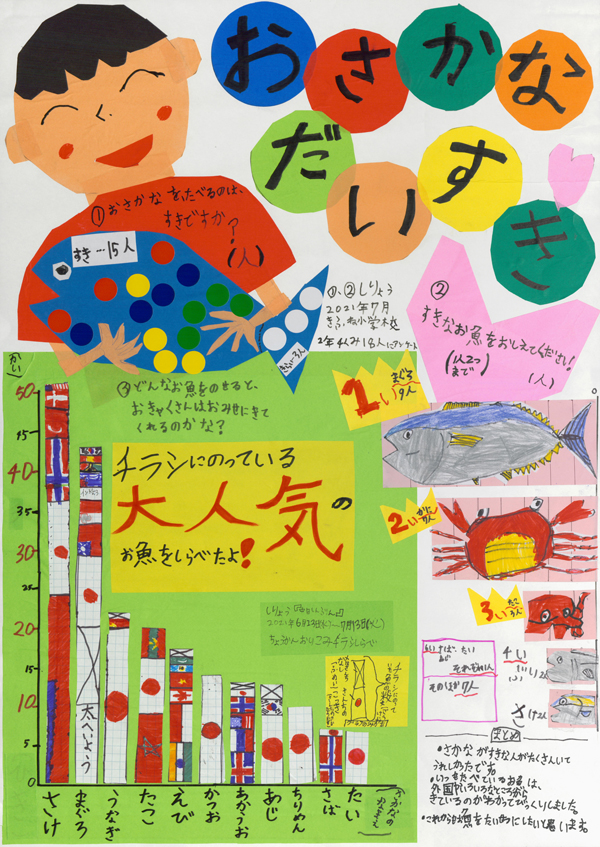 おさかな
だいすき
①おさかなをたべるのは、
すきですか?
(人)
すき…15人
きらい…3人
①、②しりょう
2021年7月
2年4くみ18人にアンケート
②
すきなお魚をおしえてください!
(1人2つ
まで)
(人)
③どんなお魚をのせると、
おきゃくさんはおみせにきて
くれるのかな?
チラシにのっている
大人気の
お魚をしらべたよ!
1い
まぐろ
9人
2い
かに
7人
3い
たこ
4い
さけ2人
その
7人
(かい)
50
40
35
30
25
20
15
10
5
0
太へいよう
さけ
まぐろ
うなぎ
たこ
えび
かつお
あかうお
あじ
ちりめん
さば
たい
2021年6月23日(水)〜7月13日(火)
ちょうかんおりこみチラシしらべ
まとめ
•さかながすきな人がたくさんいて
うれしかったです。
•いつもたべているお魚は、
外国やいろいろなところから
きているのがわかってびっくりしました。
•これからは魚をたいせつにしたいと思います。